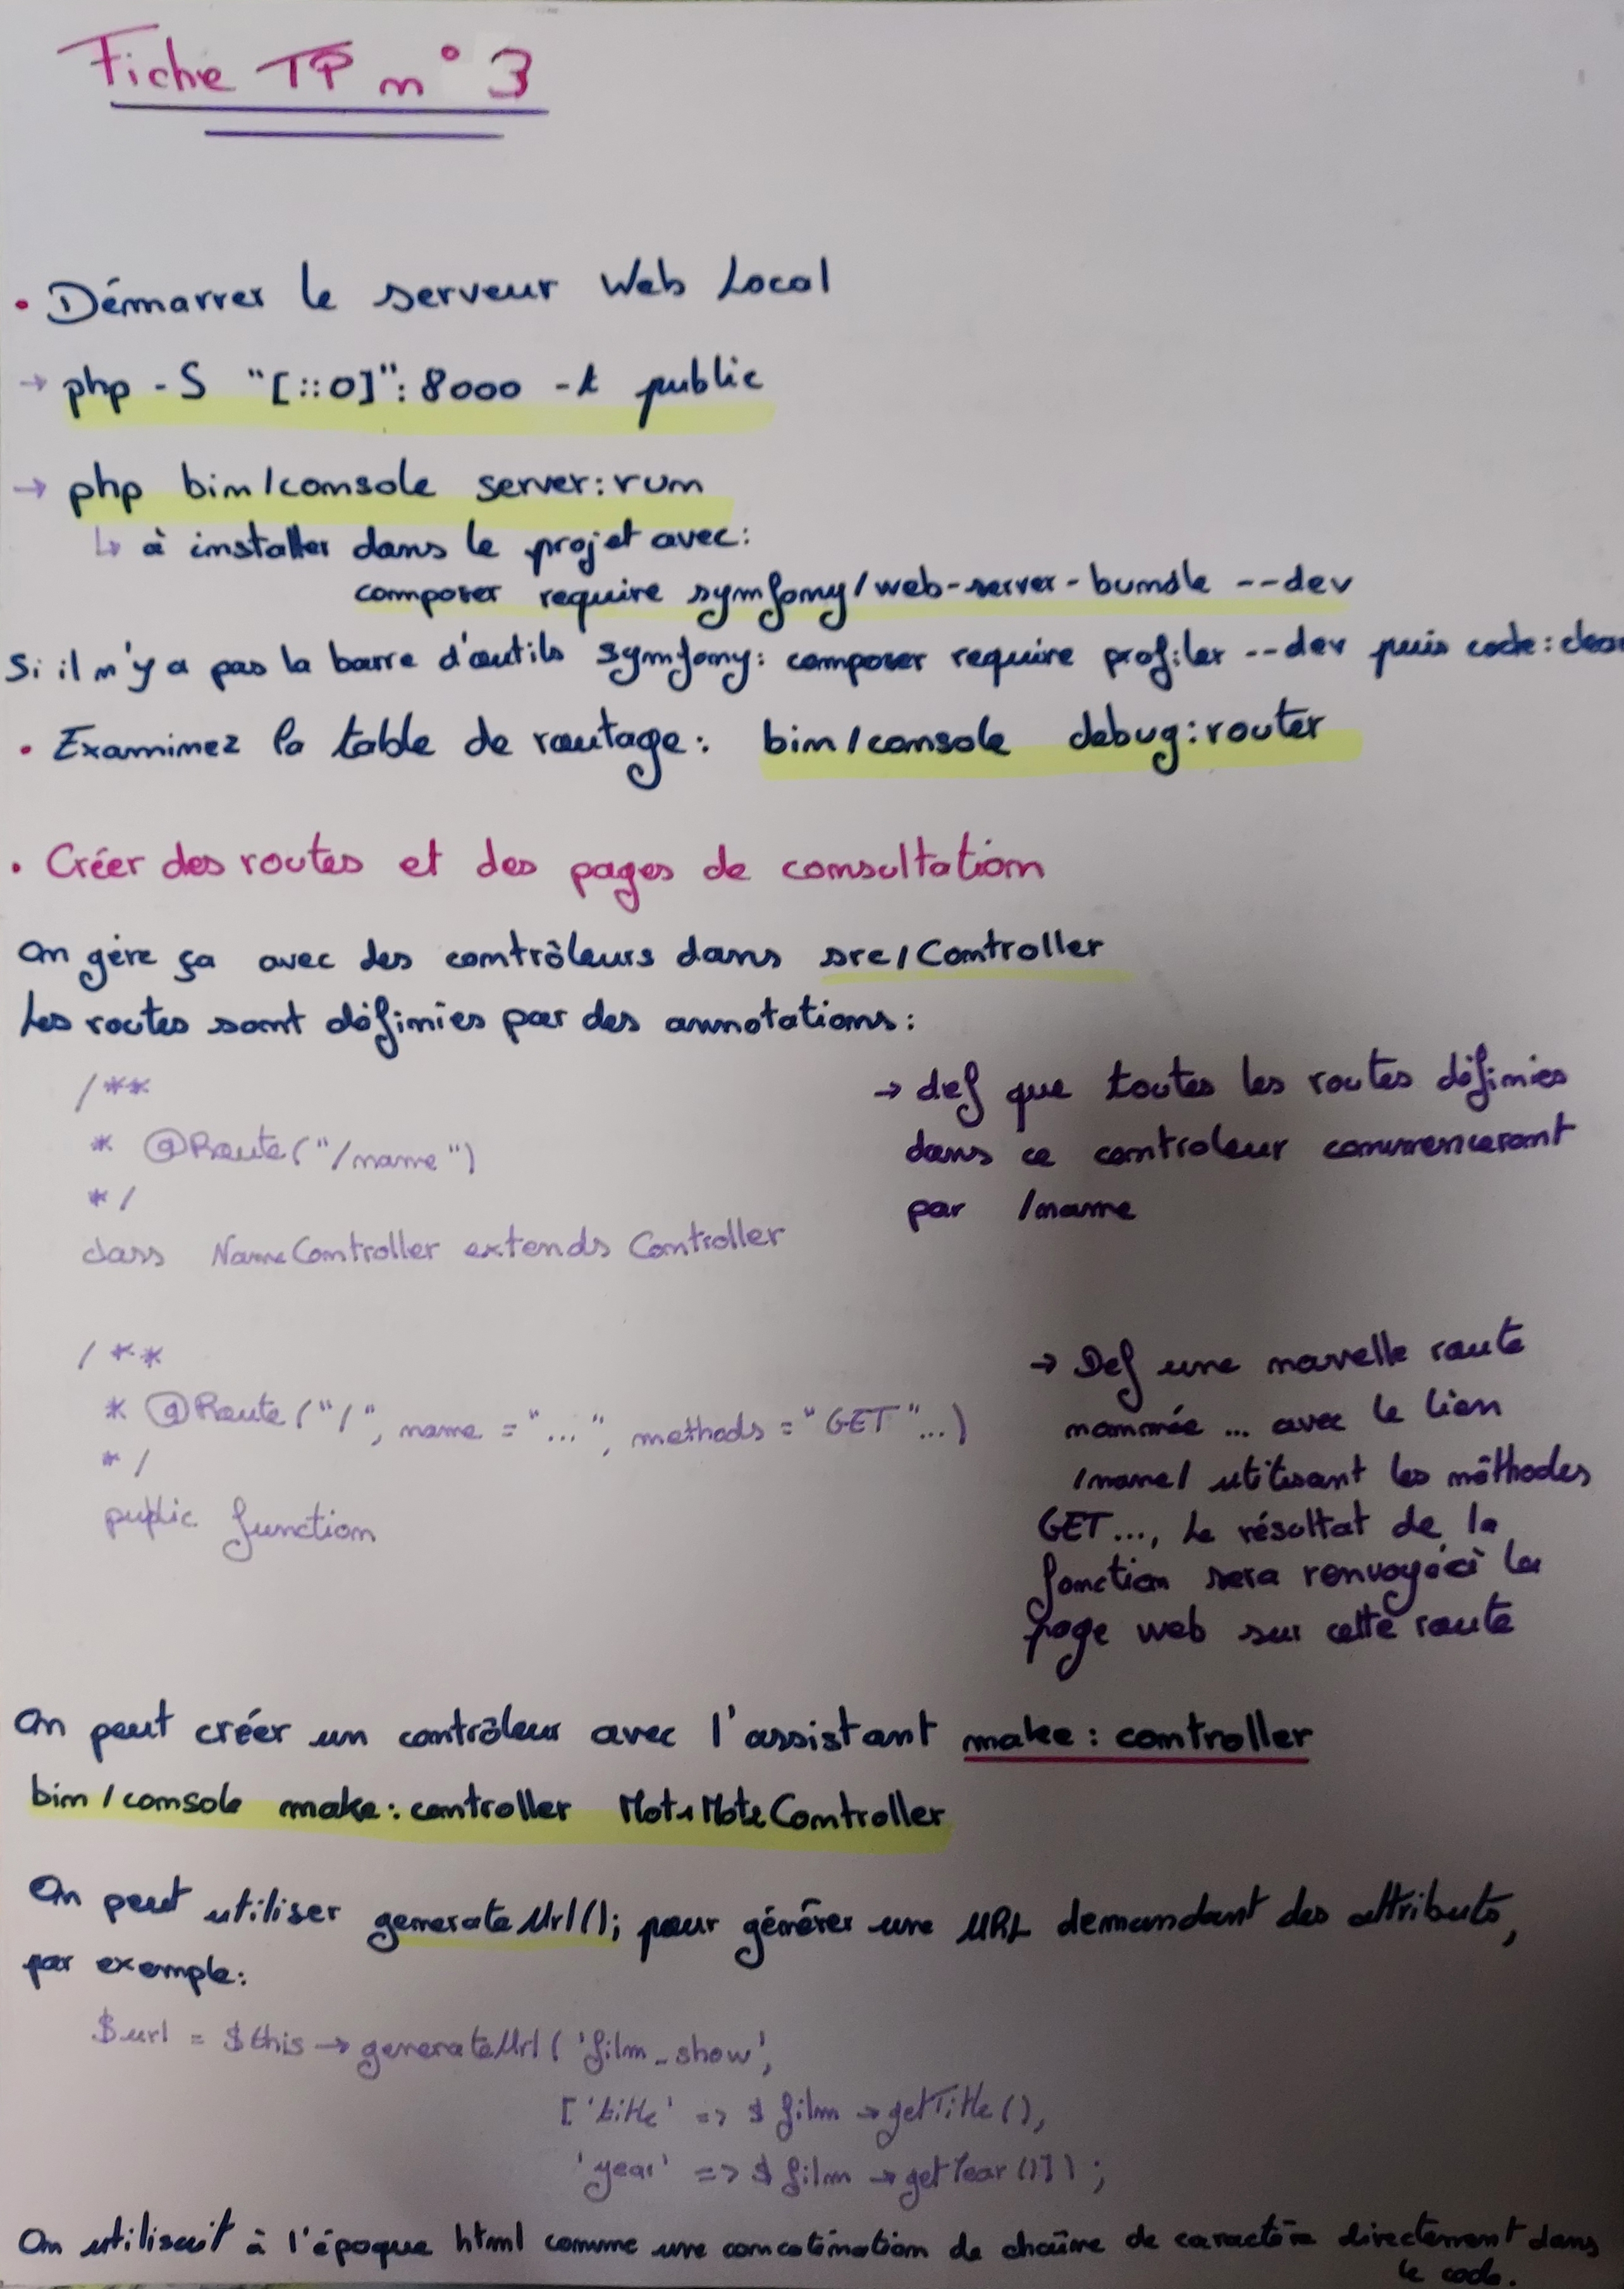 Fiche TP n°3
• Démarrer le serveur Web Local
→ php -S "[::0]":8000 -t public
→ php bin/console server:run
↳ à installer dans le projet avec:
composer require symfony/web-server-bundle --dev
Si il n'y a pas la barre d'outils symfony: composer require profiler --dev puis
• Examinez la table de routage: bin/console debug:router
• Créer des routes et des pages de consultation
On gère ça avec des contrôleurs dans src/Controller
Les routes sont définies par des annotations:
/**
* @Route("/name")
*/
class NameController extends Controller
→ def que toutes les routes définies
dans ce controleur commenceront
par /name
/**
* @Route("/", name = "...", methods = "GET"...)
*/
public function
→ Def une nouvelle route
nommée ... avec le lien
/name/ utilisant les méthodes
GET..., Le résultat de la
fonction sera renvoyé à la
page web sur cette route
On peut créer un contrôleur avec l'assistant make:controller
bin/console make:controller MotMoteController
On peut utiliser generateUrl(); pour générer une URL demandant des attributs,
par exemple:
$url = $this → generateUrl('film_show',
['title' => $film → getTitle(),
'year' => $film → getYear()]);
On utilisait à l'époque html comme une concaténation de chaîne de caractère directement dans
le code.